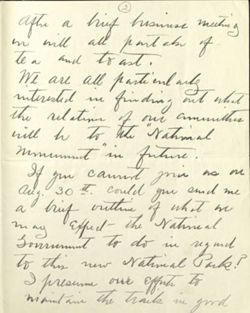 2
After a brief business meeting
we will all partake of
tea and toast.
We are all particularly
interested in finding out what
the relation of our committees
will be to the National
Monument" in future.
If you cannot join us on
Aug. 30th could you send me
a brief outline of what we
may expect the National
Government to do in regard
to this new National Park?
I presume our efforts to
maintain the trails in good